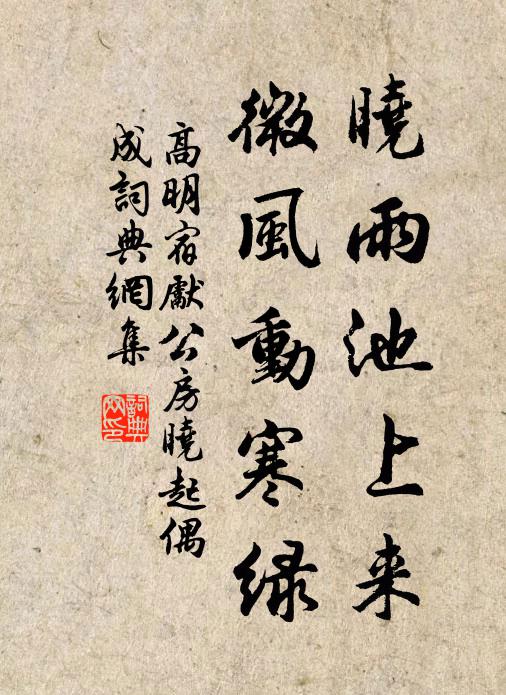 曉雨池上来
微風動寒緑
高明宿獻公房曉起偶
成詞典網集
詞典网印